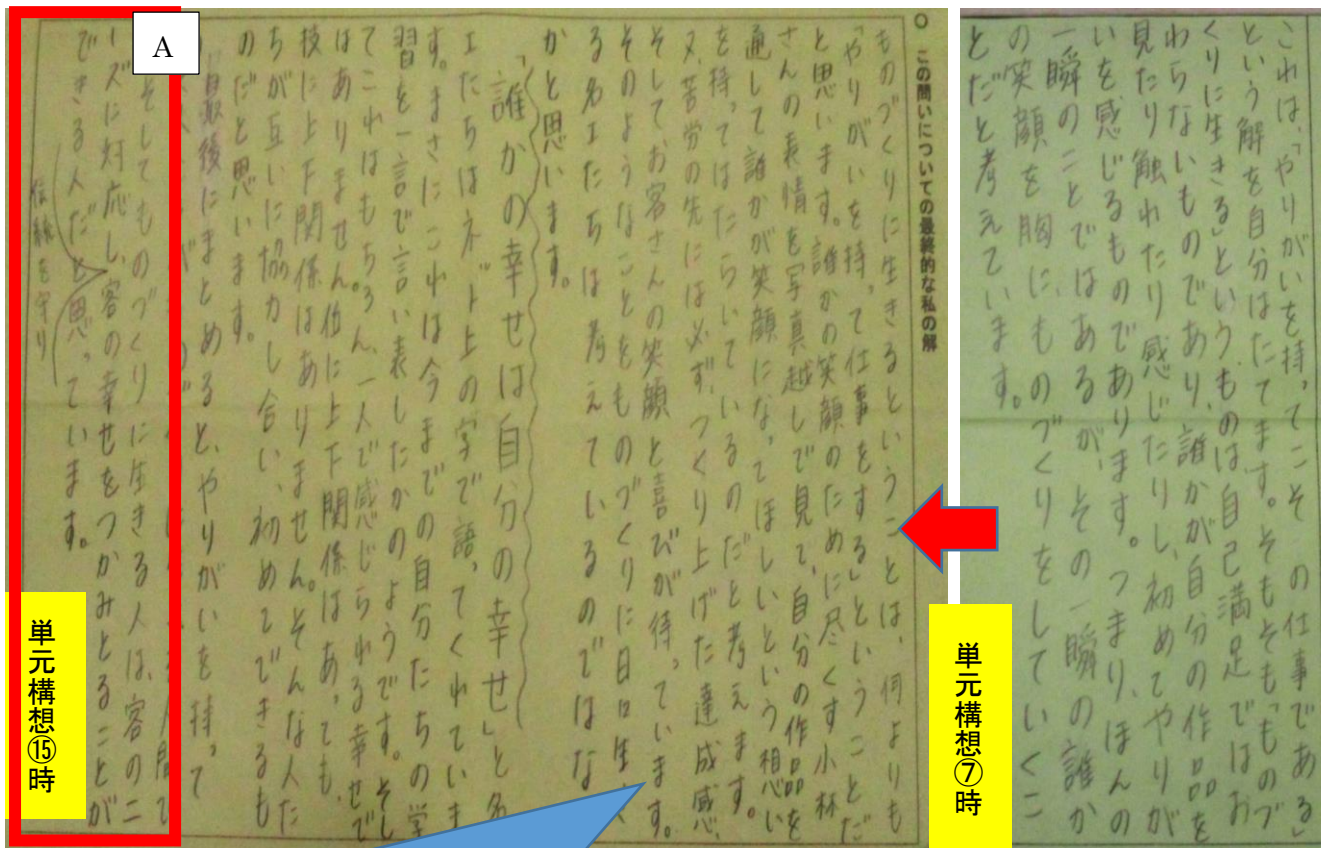 これは、「やりがいを持ってこその仕事である」
という解を自分はたてます。そもそも「ものづ
くりに生きる」というものは自己満足ではお
わらないものであり、誰かが自分の作品を
見たり触れたり感じたりし、初めてやりが
いを感じるものであります。つまり、ほんの
一瞬のことではあるが、その一瞬の誰か
の笑顔を胸にものづくりをしていくこ
とだと考えています。
単元構想⑦時
○ この問いについての最終的な私の解
ものづくりに生きるということは、何よりも
「やりがいを持って仕事をする」ということだ
と思います。誰かの笑顔のために尽くす小林
さんの表情を写真越しで見て、自分の作品を
通して誰かが笑顔になってほしいという想い
を持ってはたらいているのだと考えます。
又、苦労の先には必ず、つくり上げた達成感、
そしてお客さんの笑顔と喜びが待っています。
そのようなことをものづくりに日々生
る名工たちは考えているのではな
かと思います。
「誰かの幸せは自分の幸せ」と名
工たちはネット上の字で語ってくれていま
す。まさにこれは今までの自分たちの学
習を一言で言い表したかのようです。そし
てこれはもちろん、一人で感じられる幸せで
はありません。位に上下関係はあっても、
技に上下関係はありません。そんな人た
ちが互いに協力し合い、初めてできるも
のだと思います。
最後にまとめると、やりがいを持って
そしてものづくりに生きる人は、客のニ
ーズに対応し、客の幸せをつかみとることが
できる人だと思っています。
伝統を守り
A
単元構想⑮時